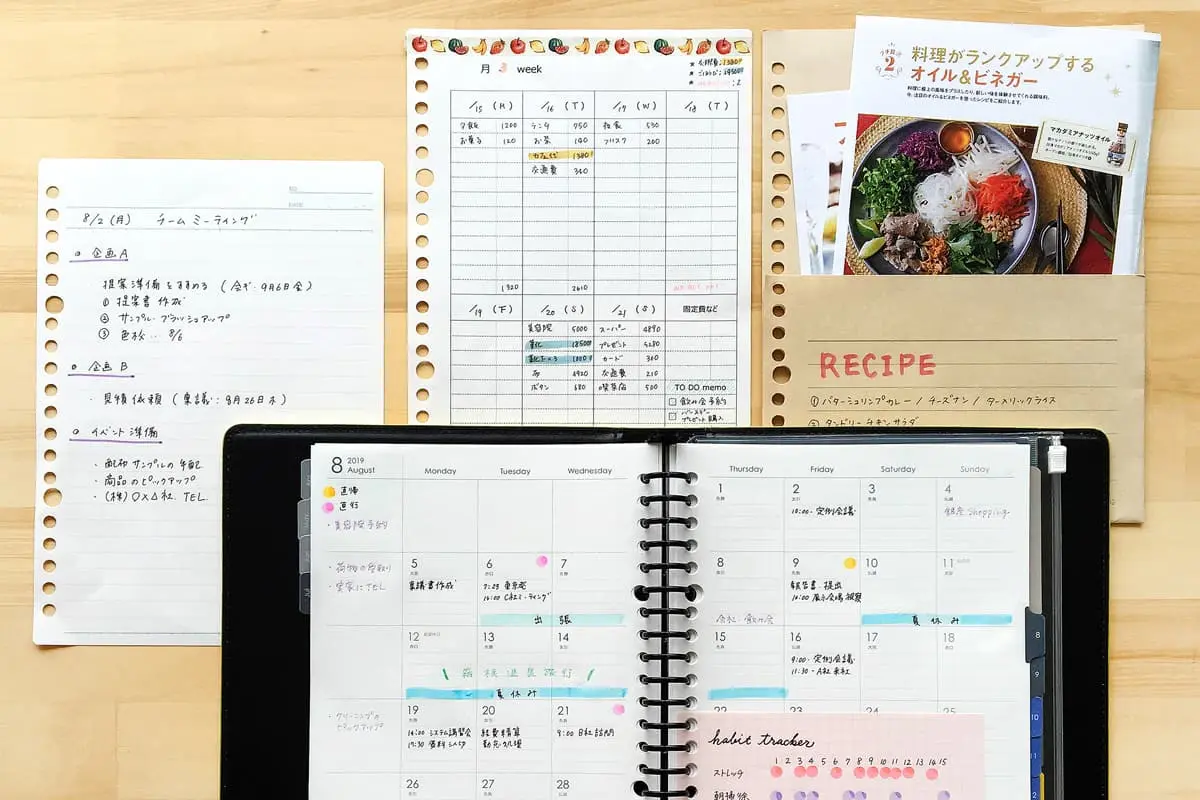 8/2(月) チームミーティング
企画A
提案準備をすすめる (会ギ: 9月6日金)
① 提案書作成
② サンプル・ブラッシュアップ
③ 色校‥ 8/6
企画B
・見積依頼 (稟議: 9月26日木)
イベント準備
・配布サンプルの手配
・商品のピックアップ
・(株)○×△社. TEL
月 week
/15 (M) /16 (T) /17 (W) /18 (T)
夕飯 1200 ランチ 950 夜食 530
お菓子 120 お茶 140 フリスク 200
カフェ代 1380
交通費 340
1320 2610
/19 (F) /20 (S) /21 (S) 固定費など
美容院 5000 スーパー 4890
18500 プレゼント 5280
カード 300
4920 交通費 210
ボタン 680 喫茶店 500
TO DO memo
飲み会予約
バースデー
プレゼント購入
手順 2
料理がランクアップする
オイル&ビネガー
料理に極上の風味をプラスしたり、新しい味を体験させてくれる調味料。
今、注目のオイル&ビネガーを使ったレシピをご紹介します。
マカダミアナッツオイル
RECIPE
① バターシュリンプカレー / チーズナン / ターメリックライス
② タンドリーチキンサラダ
8 2019
August
Monday Tuesday Wednesday
直帰
直行
・美容院予約
・荷物の受取り
・実家にTEL
5 6 7
稟議書作成
7:23 東京発
14:00 C社ミーティング
出張
12 13 14
箱根温泉旅行
夏休み
・クリーニングの
ピックアップ
19 20 21
14:00 システム講習会
経費精算
9:00 B社訪問
26 27 28
Thursday Friday Saturday Sunday
1 2 3 4
10:00- 定例会議
銀座 Shopping
8 9 10 11
報告書提出
14:00 展示会場視察
会社・飲み会
夏休み
15 16 17 18
9:00- 定例会議
11:30- A社来社
22 23 24 25
habit tracker
1 2 3 4 5 6 7 8 9 10 11 12 13 14 15
ストレッチ
朝掃除
8
9
10
11